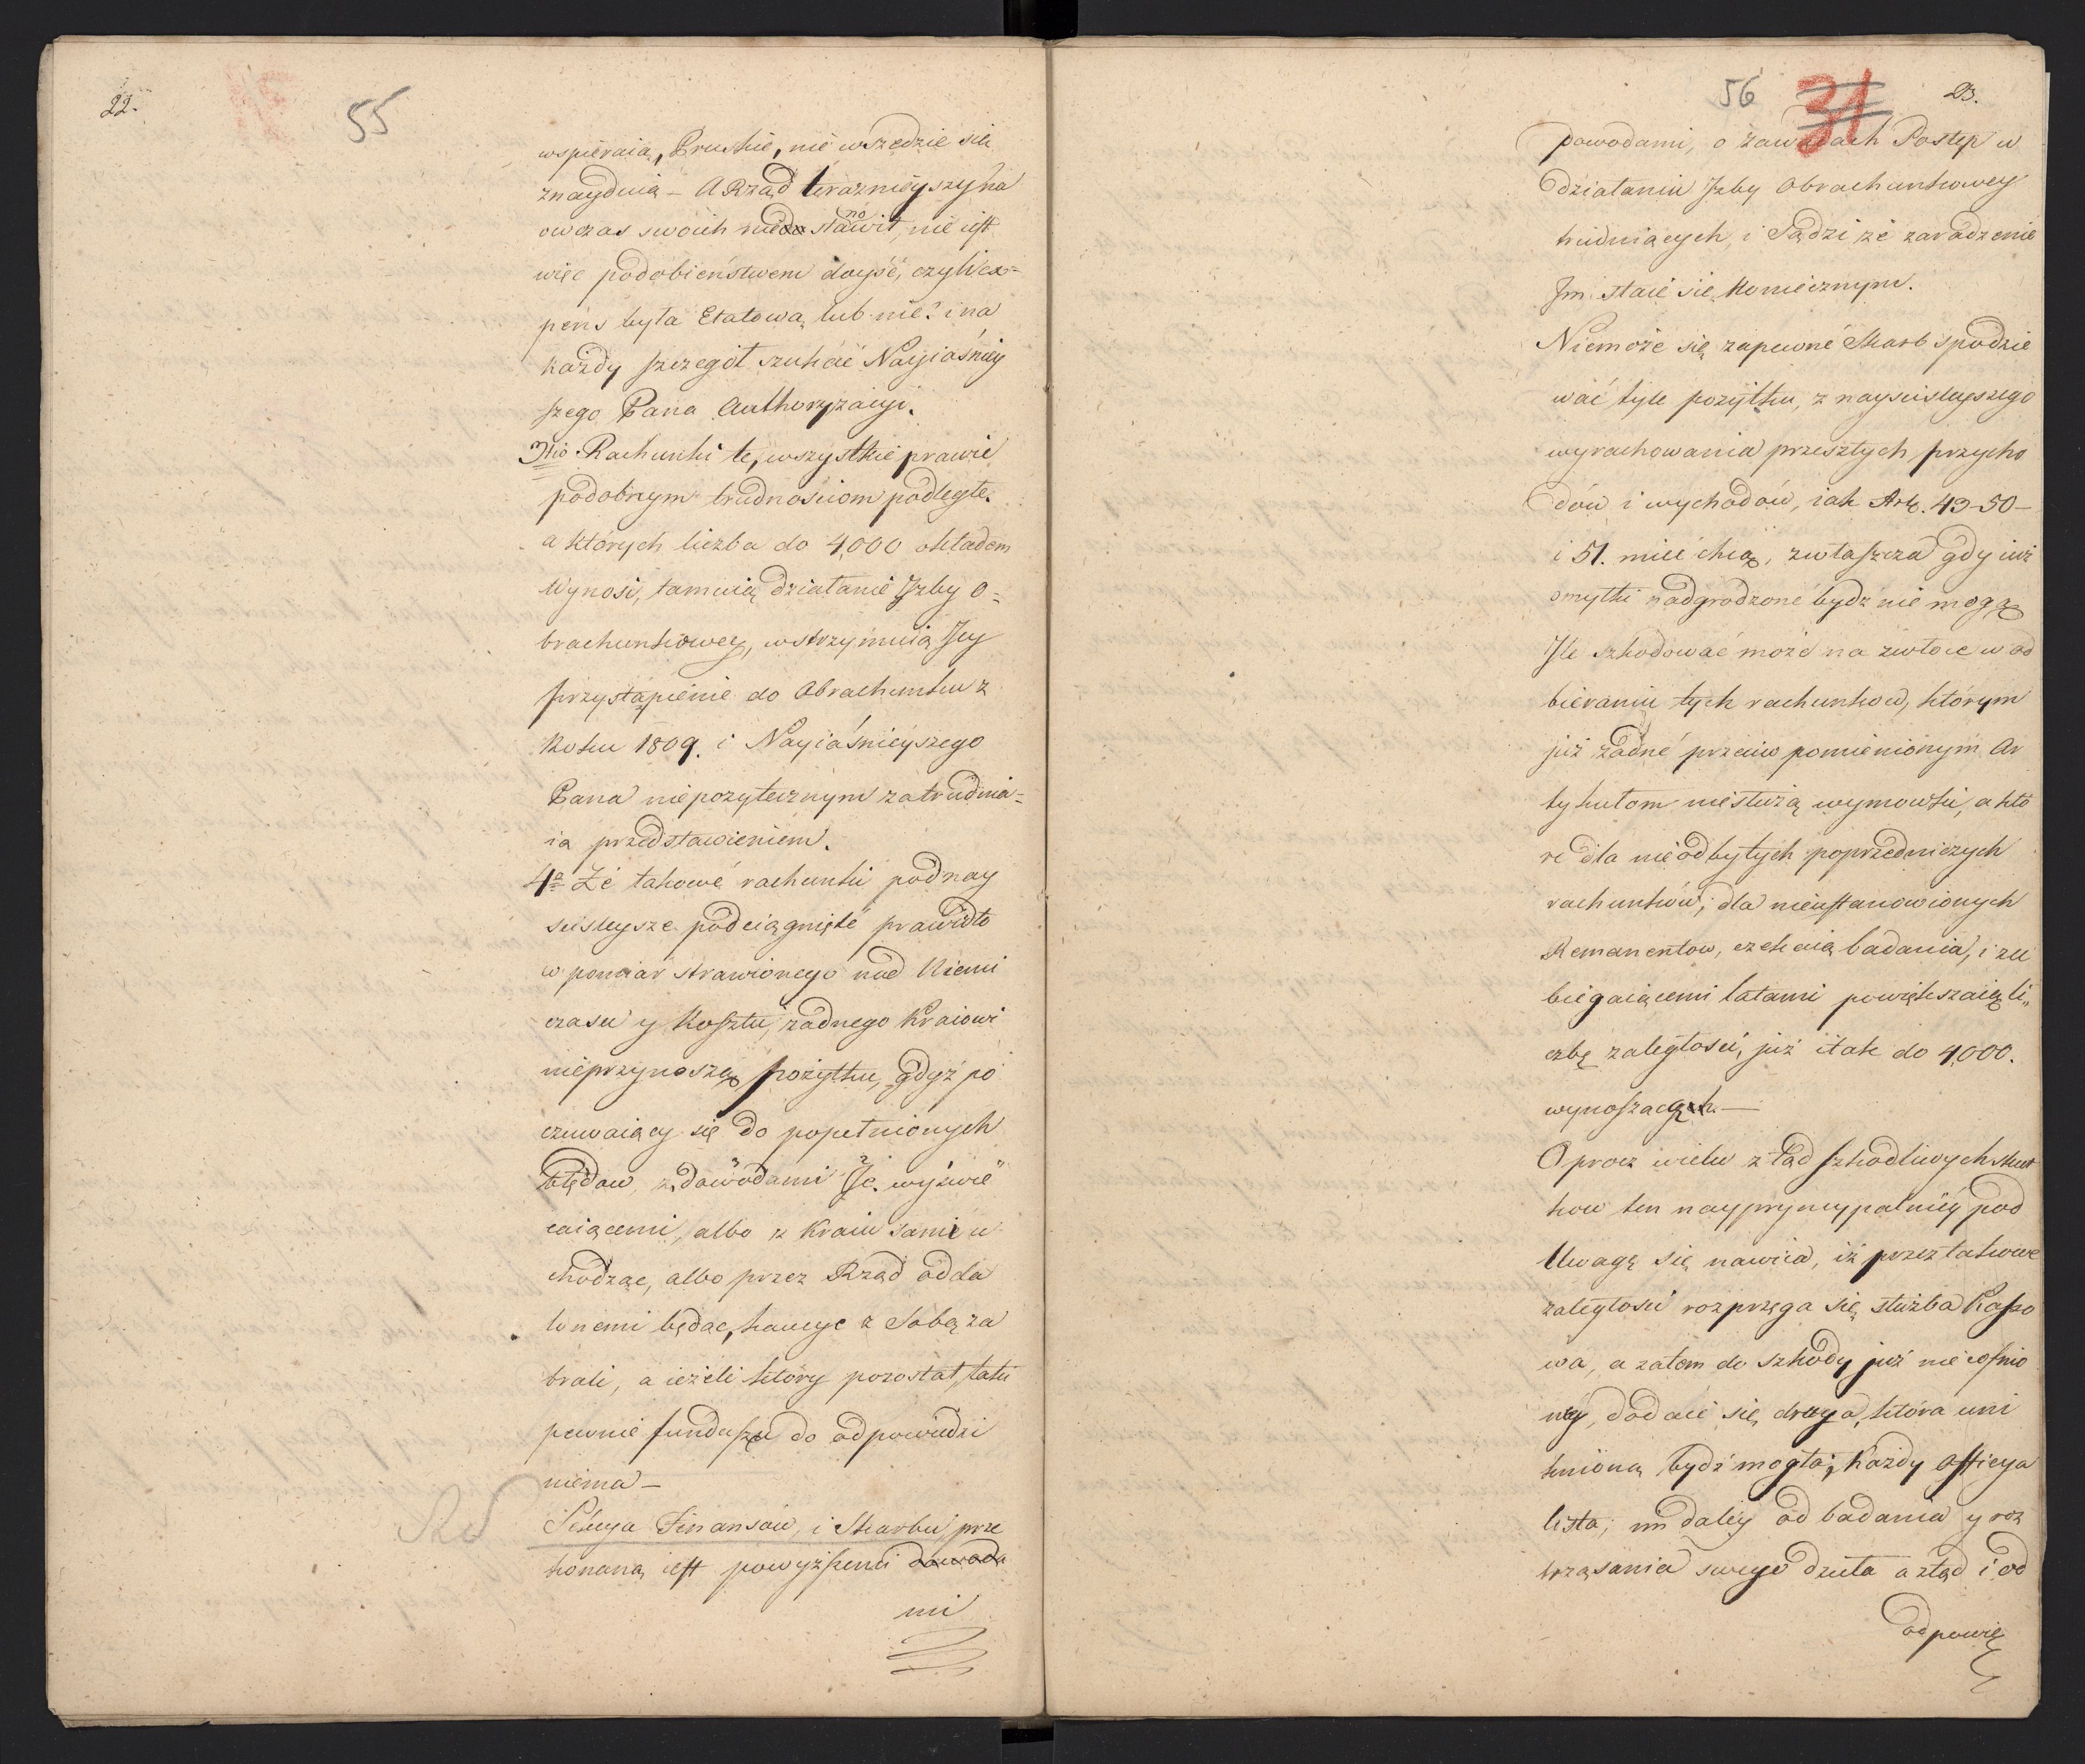 22.
55
wspieraią, Pruskie, nie wszędzie się
znayduią – A Rząd teraznieyszy na
owczas swoich nie no stawił, nie iest
więc podobieństwem doyść, czyli ex=
pens była Etatową lub nie? i na
każdy szczegół szukać Nayiaśniey
szego Pana Authoryzacyi.
3tio Rachunki te, wszystkie prawie
podobnym trudnościom podległe.
a których liczba do 4,000 okładem
Wynosi, tamuią działanie Izby O=
brachunkowey, wstrzymuią Jey
przystąpienie do Obrachunku z
Roku 1809. i Nayiaśnieyszego
Pana niepozytecznym zatrudnia=
ią przedstawieniem.
4o Że takowe rachunki pod nay
scisleysze podciągnięte prawidło
w pomiar strawionego nad Niemi
czasu y Kosztu, żadnego Kraiowi
nieprzynoszą pożytku, gdyż po
czuwaiący się do popełnionych
błędow, z dowodami Je wyswie
caiącemi, albo z Kraiu sami u
chodząc, albo przez Rząd odda
lonemi będąc, kaucye z Sobą za
brali, a ieżeli który pozostał, taki
pewnie funduszu do odpowiedzi
niema –
Sekcya Finansow, i Skarbu, prze
konaną iest powyższemi dowoda
mi
56
31
23.
powodami, o zawadach Postęp w
działaniu Izby Obrachunkowey
trudniących, i Sądzi że zaradzenie
Jm staie się Koniecznym.
Niemoże się zapewne Skarb spodzie
wać tyle pożytku, z nayscisleyszego
wyrachowania przeszłych przycho
dów i wychodów, iak Art. 49-50-
i 51. mieć chcą, zwłaszcza gdy iuż
omyłki nadgrodzone bydz nie mogą
Jle szkodować może na zwłoce w od
bieraniu tych rachunkow, którym
już żadne przeciw pomienionym Ar
tykułom niesłużą wymowki, a któ
re dla nieodbytych poprzedniczych
rachunków, dla nieustanowionych
Remanentow, czekaią badania, i zu
biegaiącemi latami powiększaią li„
czbę zaległości, już i tak do 4,000.
wynoszących. –
Oprocz wielu ztąd szkodliwych skut
kow ten naypryncypalniéy pod
Uwagę się nawiia, iż przez takowe
zaległości rozprzęga się służba Kasso
wa, a zatem do szkody już nie cofnio
néy, dodaie się druga, która uni
knioną bydź mogła; każdy officya
lista; im daléy od badania y roz
trząsania swego dzieła a ztąd i od
odpowie